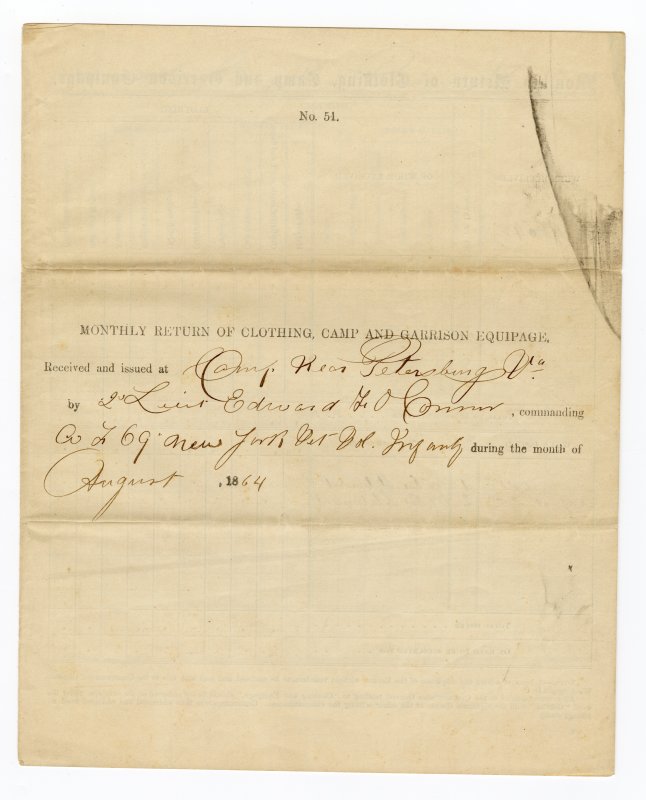 No. 51.
MONTHLY RETURN OF CLOTHING, CAMP AND GARRISON EQUIPAGE,
Received and issued at Camp Near Petersburg Va
by 2d Lieut Edward F. O Connor, commanding
Co F 69 New York Vet Vol. Infanty during the month of
August, 1864